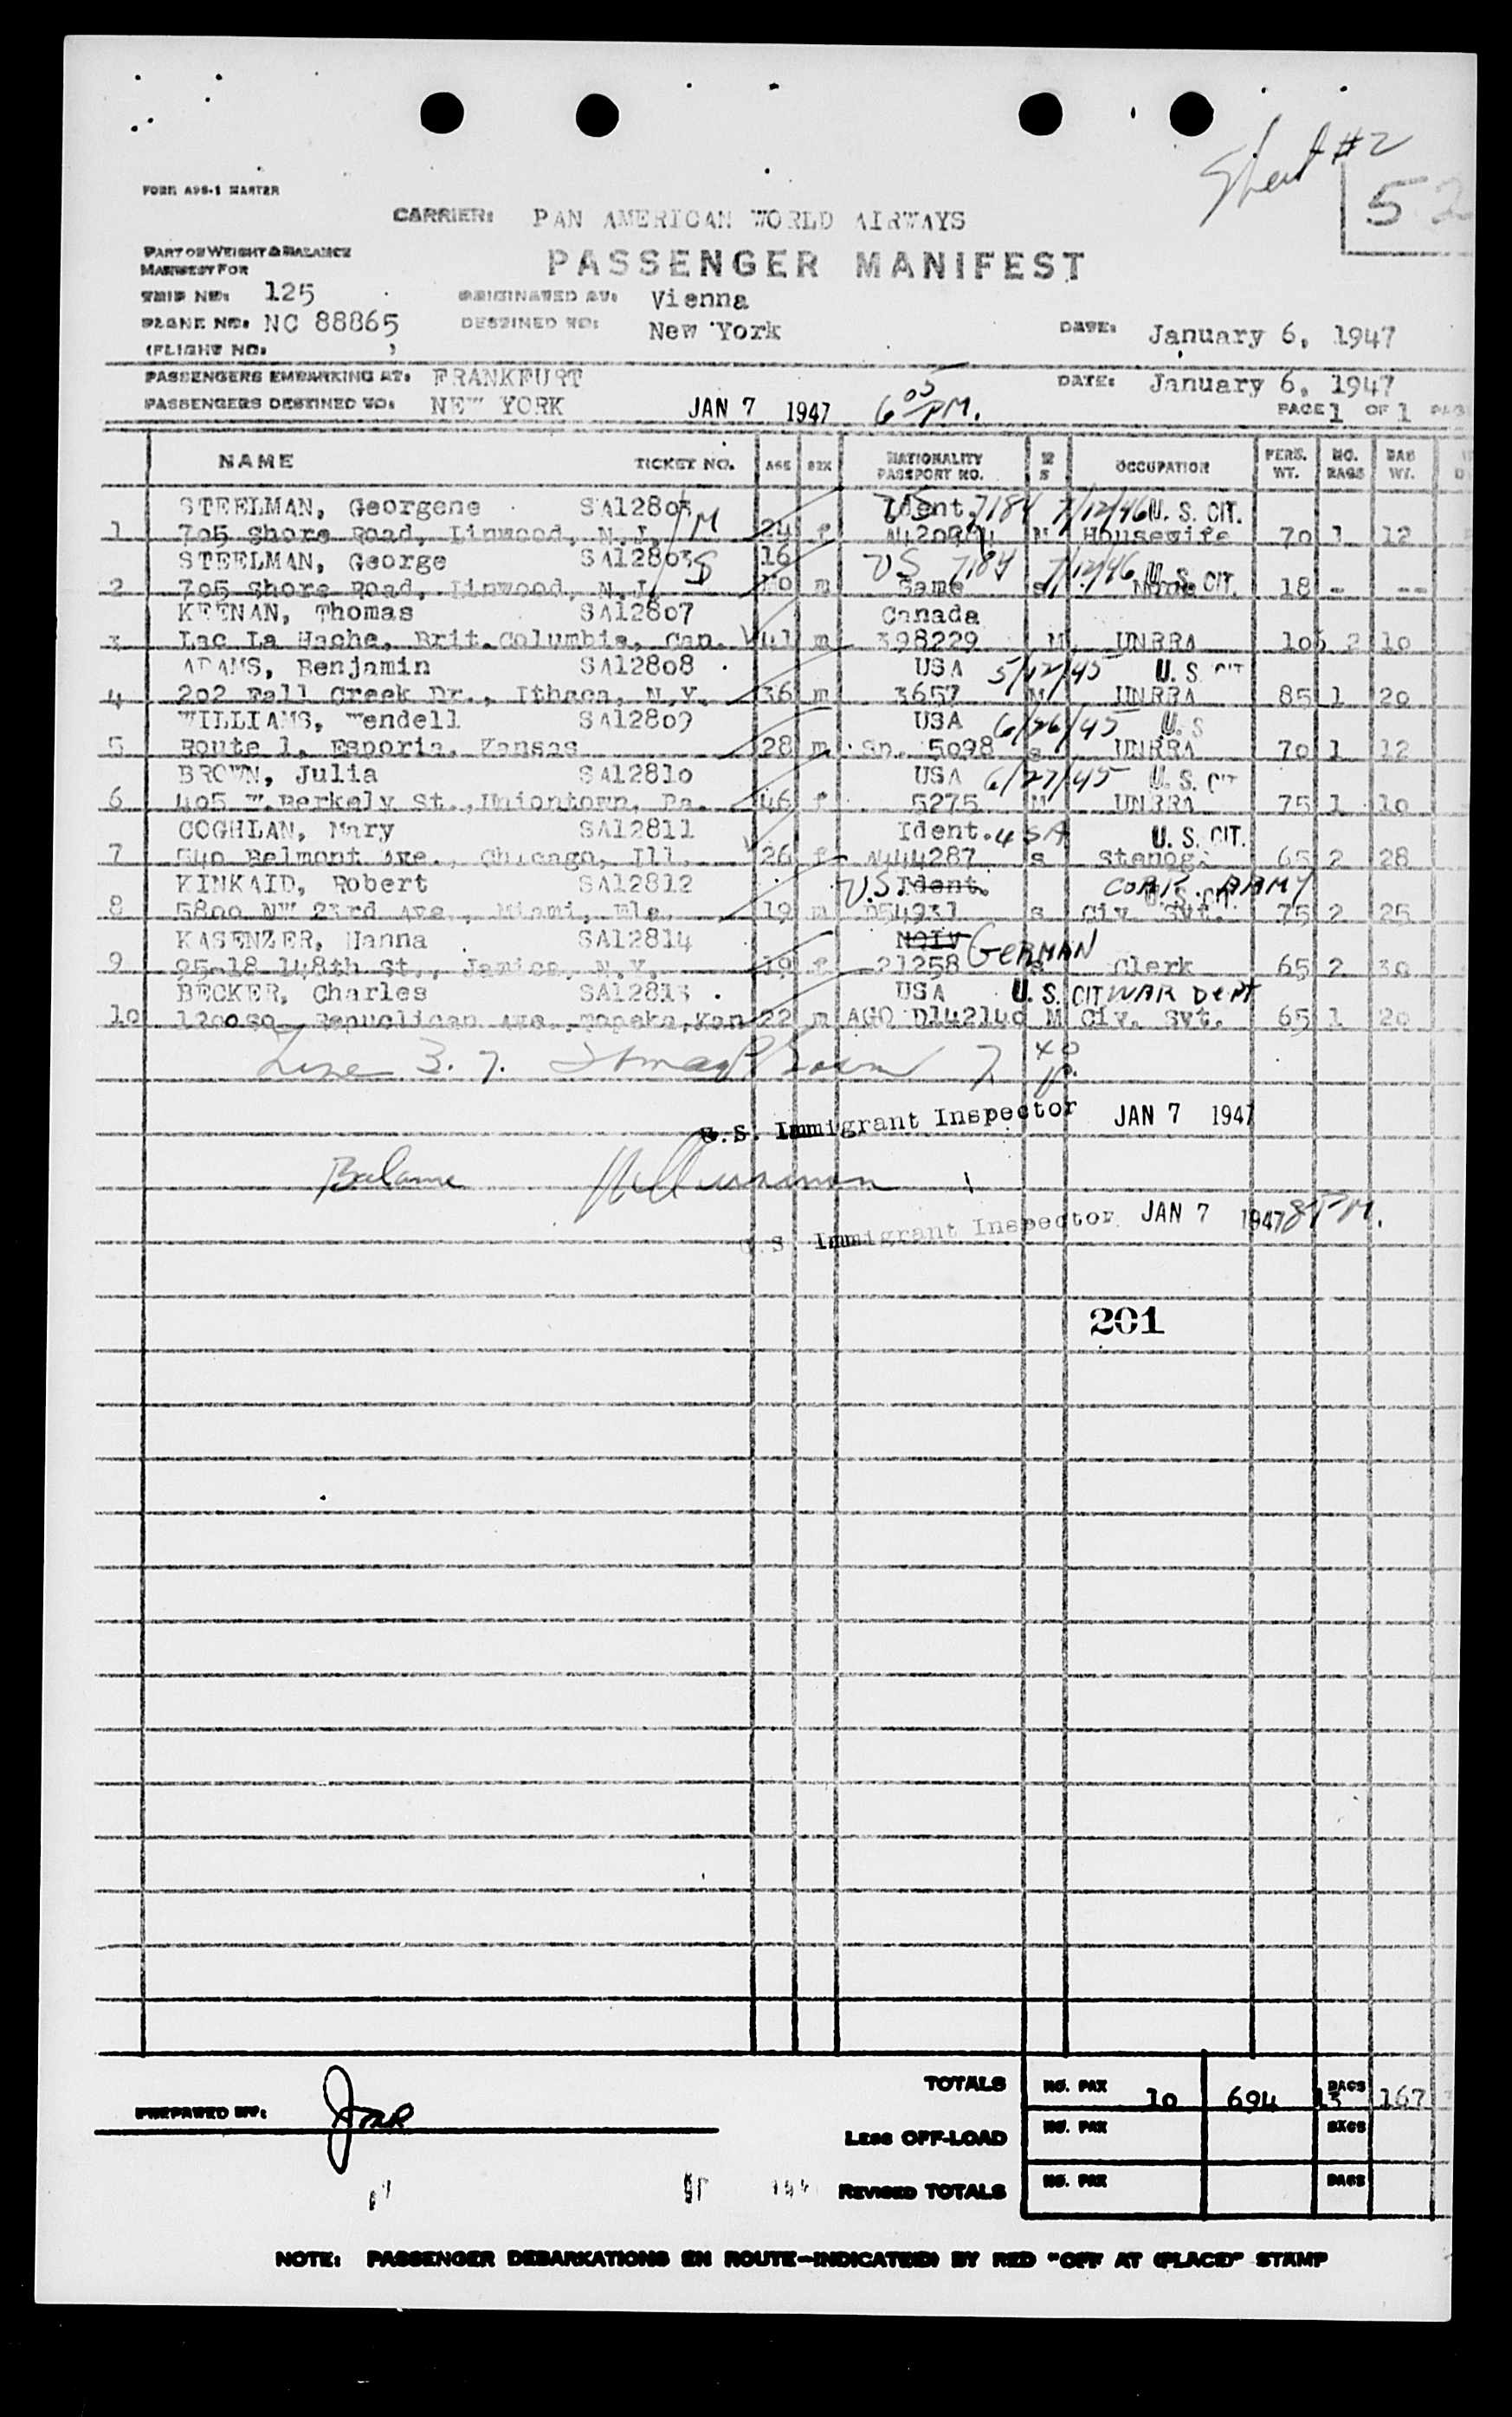 Sheet #2
52
FORM A98-1 MASTER
CARRIER: PAN AMERICAN WORLD AIRWAYS
PART OF WEIGHT & BALANCE
MANIFEST FOR
PASSENGER MANIFEST
TRIP NO: 125 ORIGINATED AT: Vienna
PLANE NO. NC 88865 DESTINED TO: New York DATE: January 6, 1947
(FLIGHT NO. )
PASSENGERS EMBARKING AT: FRANKFURT DATE: January 6, 1947
PASSENGERS DESTINED TO: NEW YORK JAN 7 1947 6 05 PM. PAGE 1 OF 1
NAME TICKET NO. AGE SEX NATIONALITY PASSPORT NO. M S OCCUPATION PERS. WT. NO. BAGS BAG WT.
STEELMAN, Georgene SA12803 Ident. 7184 7/12/46 U. S. CIT.
1 705 Shore Road, Linwood, N.J. M 24 f M Housewife 70 1 12
STEELMAN, George SA12803 16 US 7184 7/12/46 U. S. CIT.
2 705 Shore Road, Linwood, N.J. S m Same s None 18 - --
KEENAN, Thomas SA12807 Canada
3 Lac La Hache, Brit.Columbia, Can. 41 m 398229 M UNRRA 105 2 10
ADAMS, Benjamin SA12808 USA 5/12/45 U. S. CIT
4 202 Fall Creek Dr., Ithaca, N.Y. 36 m 3657 M UNRRA 85 1 20
WILLIAMS, Wendell SA12809 USA 6/26/45 U. S
5 Route 1, Emporia, Kansas 28 m Sp. 5098 s UNRRA 70 1 12
BROWN, Julia SA12810 USA 6/27/45 U. S. CIT
6 405 W.Berkely St.,Uniontown, Pa. 46 f 5275 M UNRRA 75 1 10
COGHLAN, Mary SA12811 Ident. USA U. S. CIT.
7 540 Belmont Ave., Chicago, Ill. 26 f A444287 s Stenog. 65 2 28
KINKAID, Robert SA12812 U.S. Ident. CORP. ARMY U. S. CIT.
8 5800 NW 23rd Ave., Miami, Fla. 19 m D54931 s Civ. Svt. 75 2 25
KASENZER, Hanna SA12814 GERMAN
9 95-18 148th St., Jamica, N.Y. 19 f 21258 s Clerk 65 2 30
BECKER, Charles SA12813 USA U. S. CIT WAR DEPT
10 1200 SO. Republican Ave.,Topeka,Kan 22 m AGO D142140 M Civ. Svt. 65 1 20
Line 3. 7.
U.S. Immigrant Inspector JAN 7 1947
Balance
U.S. Immigrant Inspector JAN 7 1947 8 PM.
201
TOTALS NO. PAX 10 694 BAGS 13 167
PREPARED BY:
LESS OFF-LOAD NO. PAX BAGS
REVISED TOTALS NO. PAX BAGS
NOTE: PASSENGER DEBARKATIONS EN ROUTE-INDICATED BY RED "OFF AT (PLACE)" STAMP